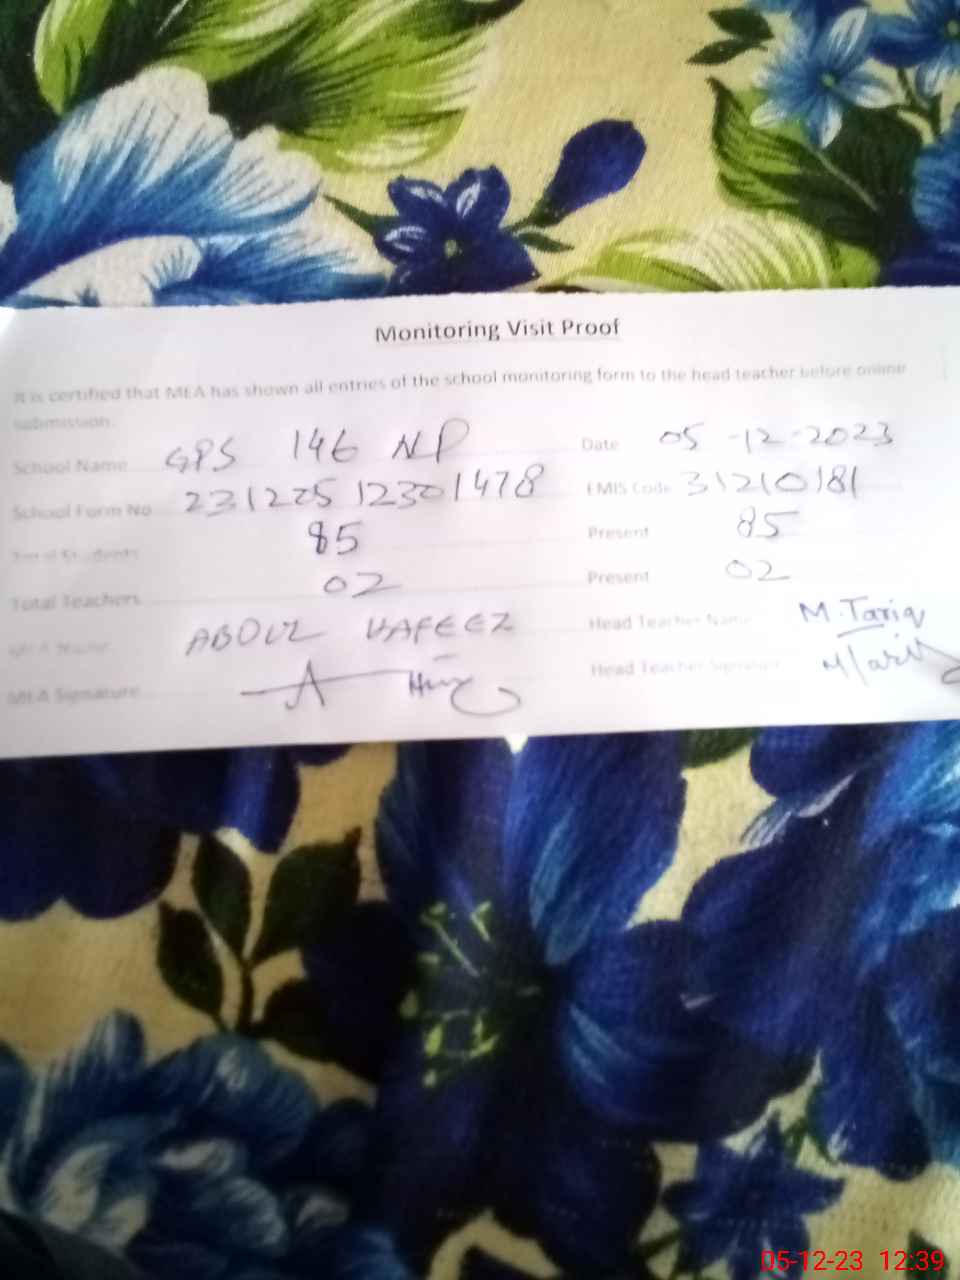 Monitoring Visit Proof
It is certified that MEA has shown all entries of the school monitoring form to the head teacher before online
submission.
School Name GPS 146 NP Date 05-12-2023
School Form No 23122512301478 EMIS Code 31210181
Total Students 85 Present 85
Total Teachers 02 Present 02
MEA Name ABDUL HAFEEZ Head Teacher Name M.Tariq
MEA Signature Head Teacher Signature
05-12-23 12:39